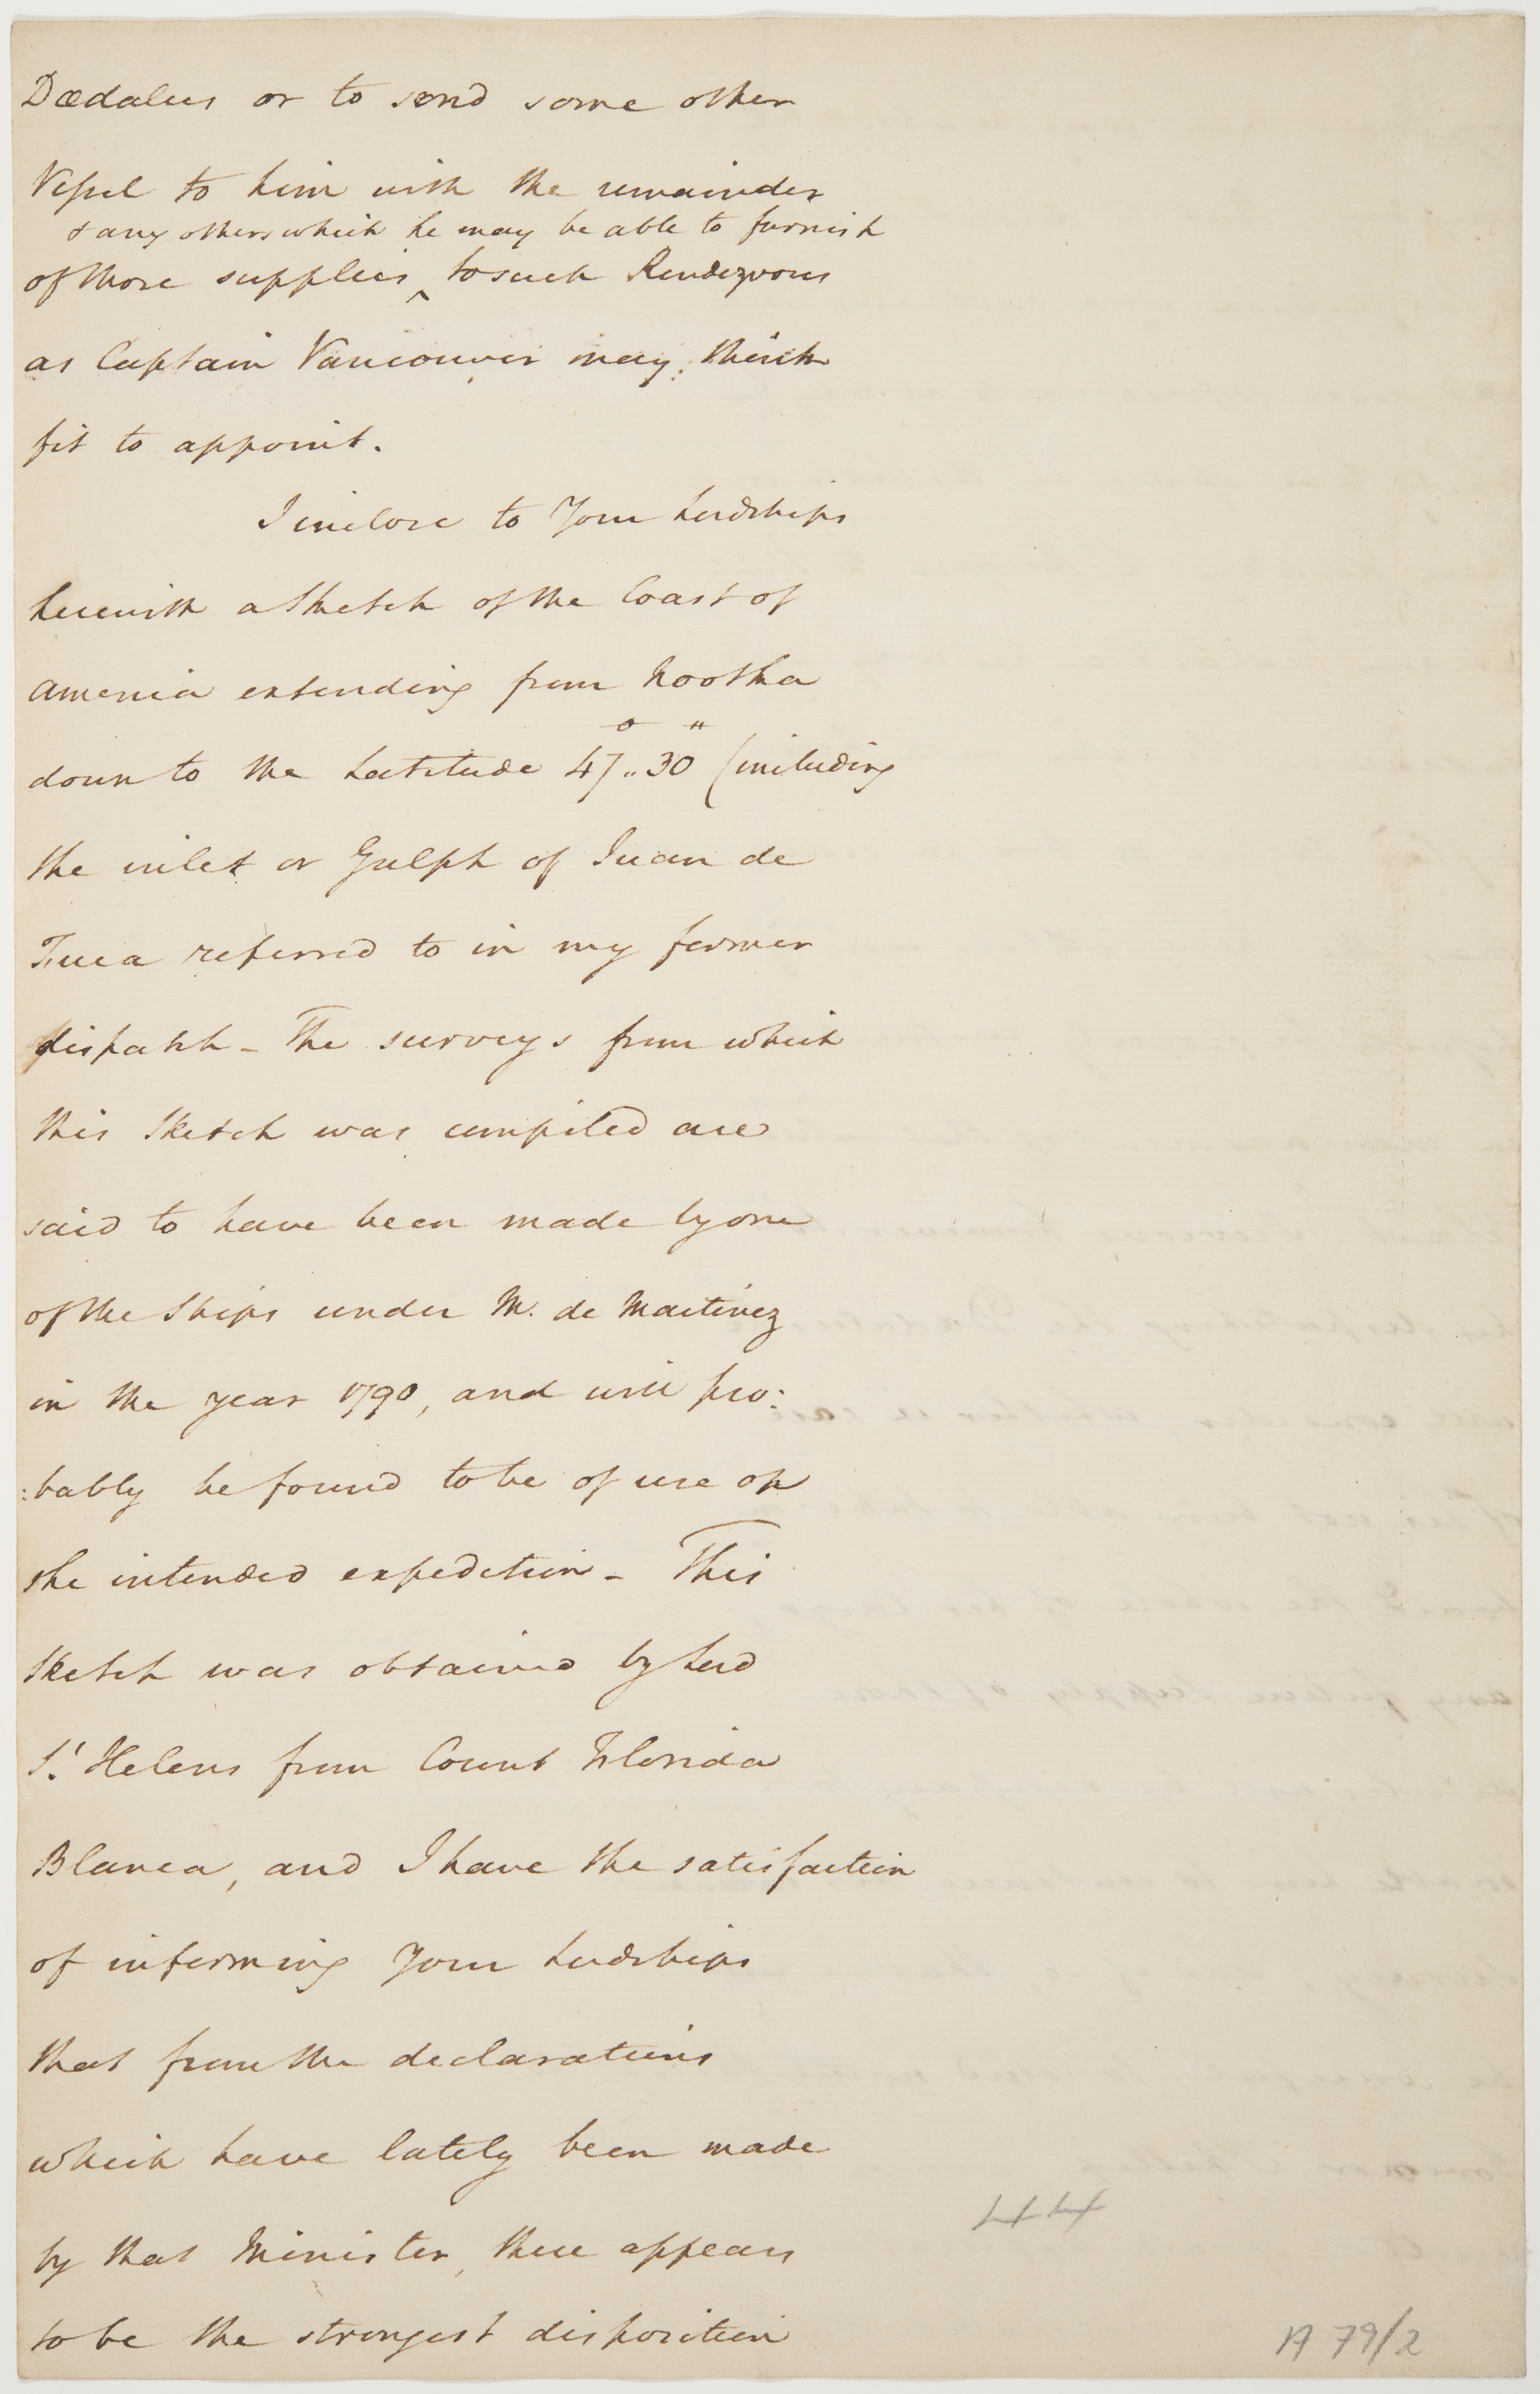 Dædalus or to send some other
Vessel to him with the remainder
& any others which he may be able to furnish
of those supplies ^ to such Rendezvous
as Captain Vancouver may think
fit to appoint.
I inclose to Your Lordships
herewith a Sketch of the Coast of
America extending from Nootka
down to the Latitude 47°.. 30" (including
the inlet or Gulph of Juan de
Fuca referred to in my former
dispatch - The surveys from which
this Sketch was compiled are
said to have been made by one
of the Ships under M. de Martinez
in the year 1790, and will pro:
:bably be found to be of use on
the intended expedition - This
Sketch was obtained by Lord
St. Helens from Count Florida
Blanca, and I have the satisfaction
of informing Your Lordships
that from the declarations
which have lately been made
by that Minister, there appears
to be the strongest disposition
44
A 79/2